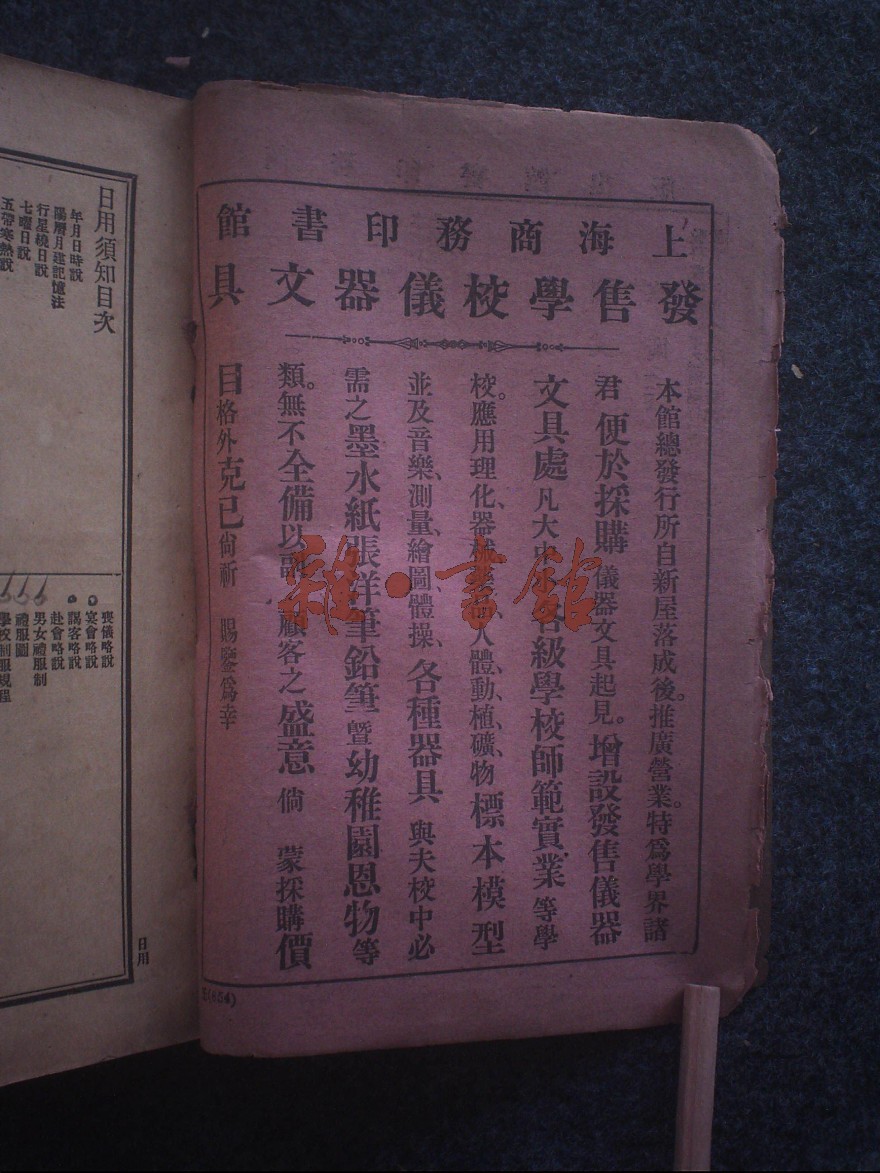 上海商務印書館
發售學校儀器文具
本館總發行所自新屋落成後。推廣營業。特爲學界諸
君便於採購儀器文具起見。增設發售儀器
文具處凡大中小各級學校師範實業等學
校。應用理化、器械藥品、人體、動、植、礦、物標本模型
並及音樂、測量、繪圖、體操、各種器具與夫校中必
需之墨水紙張洋筆鉛筆暨幼稚園恩物等
類。無不全備以副顧客之盛意倘蒙採購價
目格外克已尙祈賜鑒爲幸
(654)
雜·書館
日用須知目次
年月日時說
陽曆月建記憶法
行星繞日說
七曜日說
五帶寒熱說
喪儀略說
宴會略說
請客略說
赴會略說
男女禮服制
禮服圖
學校制服規程
日用